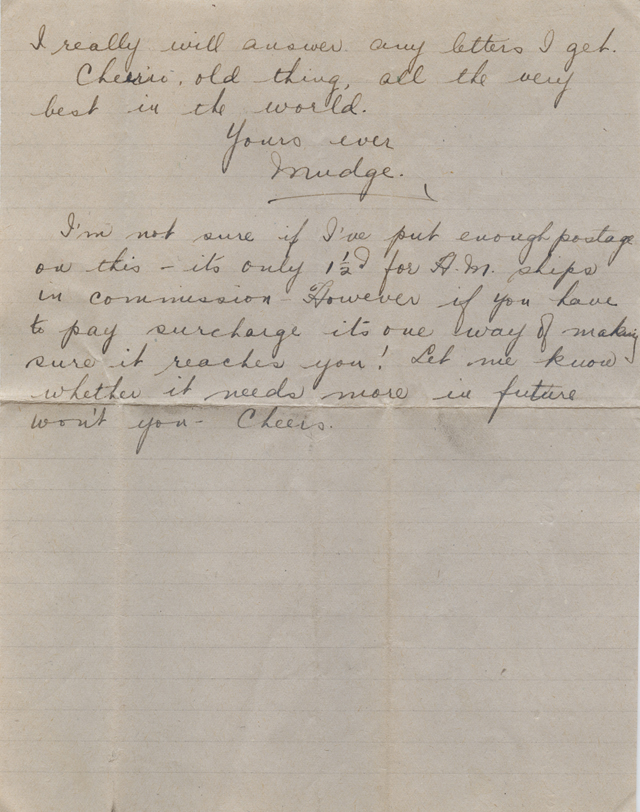 I really will answer any letters I get.
Cheerio, old thing, all the very
best in the world.
Yours ever
Mudge.
I'm not sure if I've put enough postage
on this - its only 1½d for H.M. ships
in commission - However if you have
to pay surcharge its one way of making
sure it reaches you! Let me know
whether it needs more in future
won't you - Cheers.